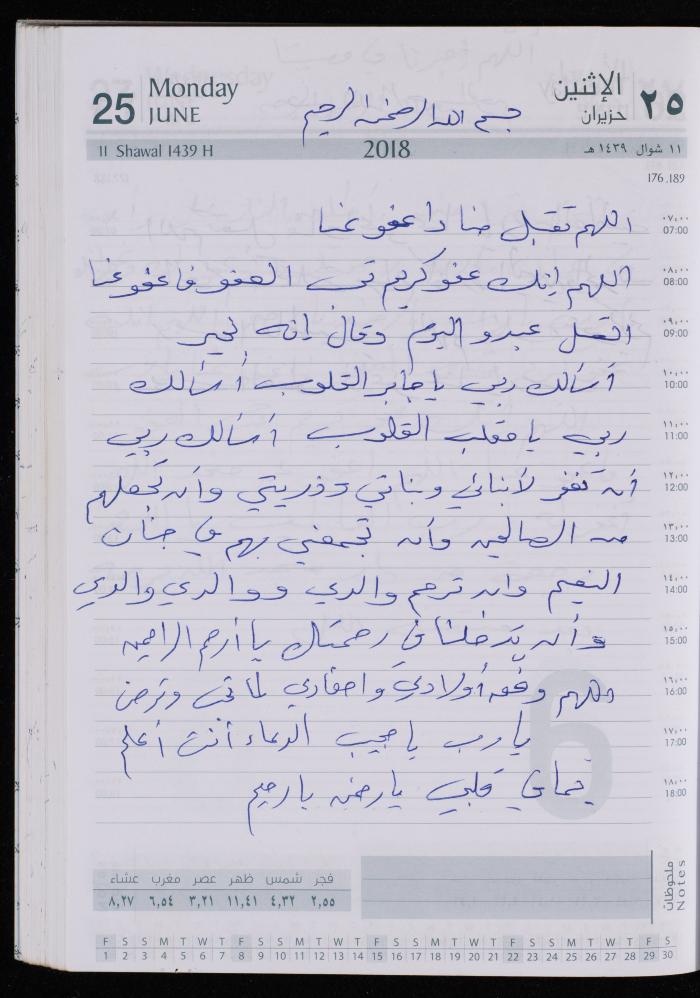 25 Monday JUNE الإثنين حزيران ٢٥
بسم الله الرحمن الرحيم
11 Shawal 1439 H 2018 ١١ شوال ١٤٣٩ هـ
176.189
اللهم تقبل منا واعفو عنا
٠٧:٠٠ 07:00
اللهم إنك عفو كريم تحب العفو فاعفو عنا
٠٨:٠٠ 08:00
اتصل عبدو اليوم وقال إنه بخير
٠٩:٠٠ 09:00
أسألك ربي يا جابر القلوب أسألك
١٠:٠٠ 10:00
ربي يا مقلب القلوب أسألك ربي
١١:٠٠ 11:00
أن تغفر لأبنائي وبناتي وذريتي وأن تجعلهم
١٢:٠٠ 12:00
من الصالحين وأن تجمعني بهم في جنات
١٣:٠٠ 13:00
النعيم وان ترحم والدي ووالدي والدي
١٤:٠٠ 14:00
وأن تدخلنا في رحمتك يا أرحم الراحمين
١٥:٠٠ 15:00
اللهم وفق أولادي واحفادي لما تحب وترضى
١٦:٠٠ 16:00
يا رب يا مجيب الدعاء أنت أعلم
١٧:٠٠ 17:00
بما في قلبي يا رحمن يا رحيم
١٨:٠٠ 18:00
6
فجر شمس ظهر عصر مغرب عشاء
٢,٥٥ ٤,٣٢ ١١,٤١ ٣,٢١ ٦,٥٤ ٨,٢٧
ملحوظات
Notes
F S S M T W T F S S M T W T F S S M T W T F S S M T W T F S
1 2 3 4 5 6 7 8 9 10 11 12 13 14 15 16 17 18 19 20 21 22 23 24 25 26 27 28 29 30